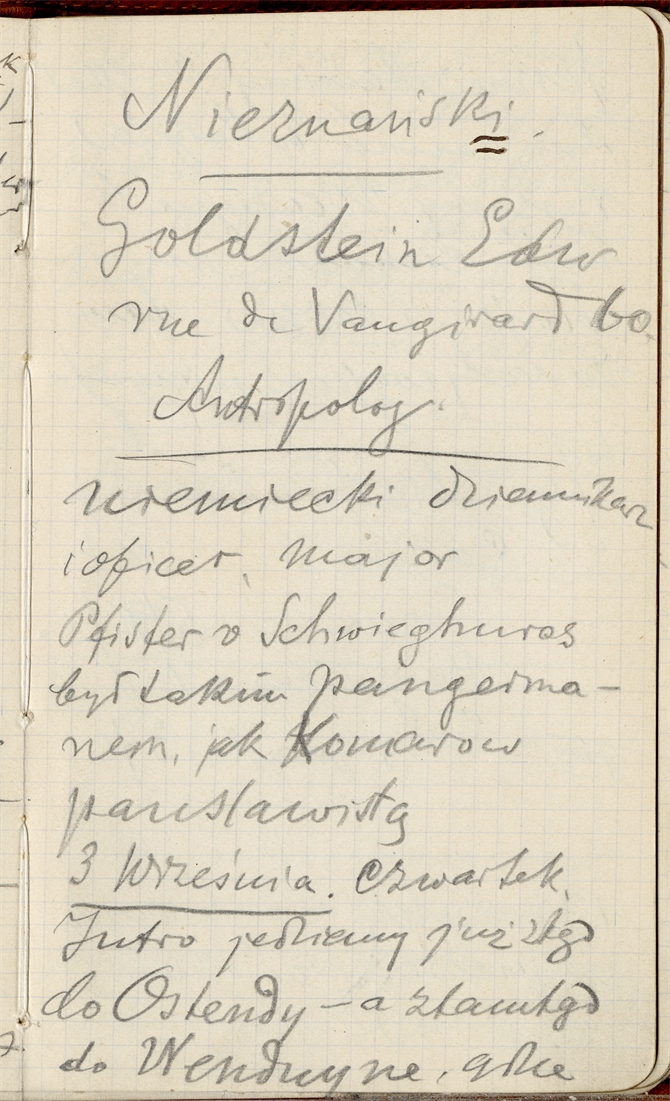 Nieznański.
Goldstein Edw
rue de Vaugirard 60.
Antropolog.
niemiecki dziennikarz
i oficer, major
Pfister v
był takim pangerma-
nem, jak Komarow
panslawistą
3 Września. Czwartek.
Jutro jedziemy już ztąd
do Ostendy – a ztamtąd
do Wenduyne, gdzie